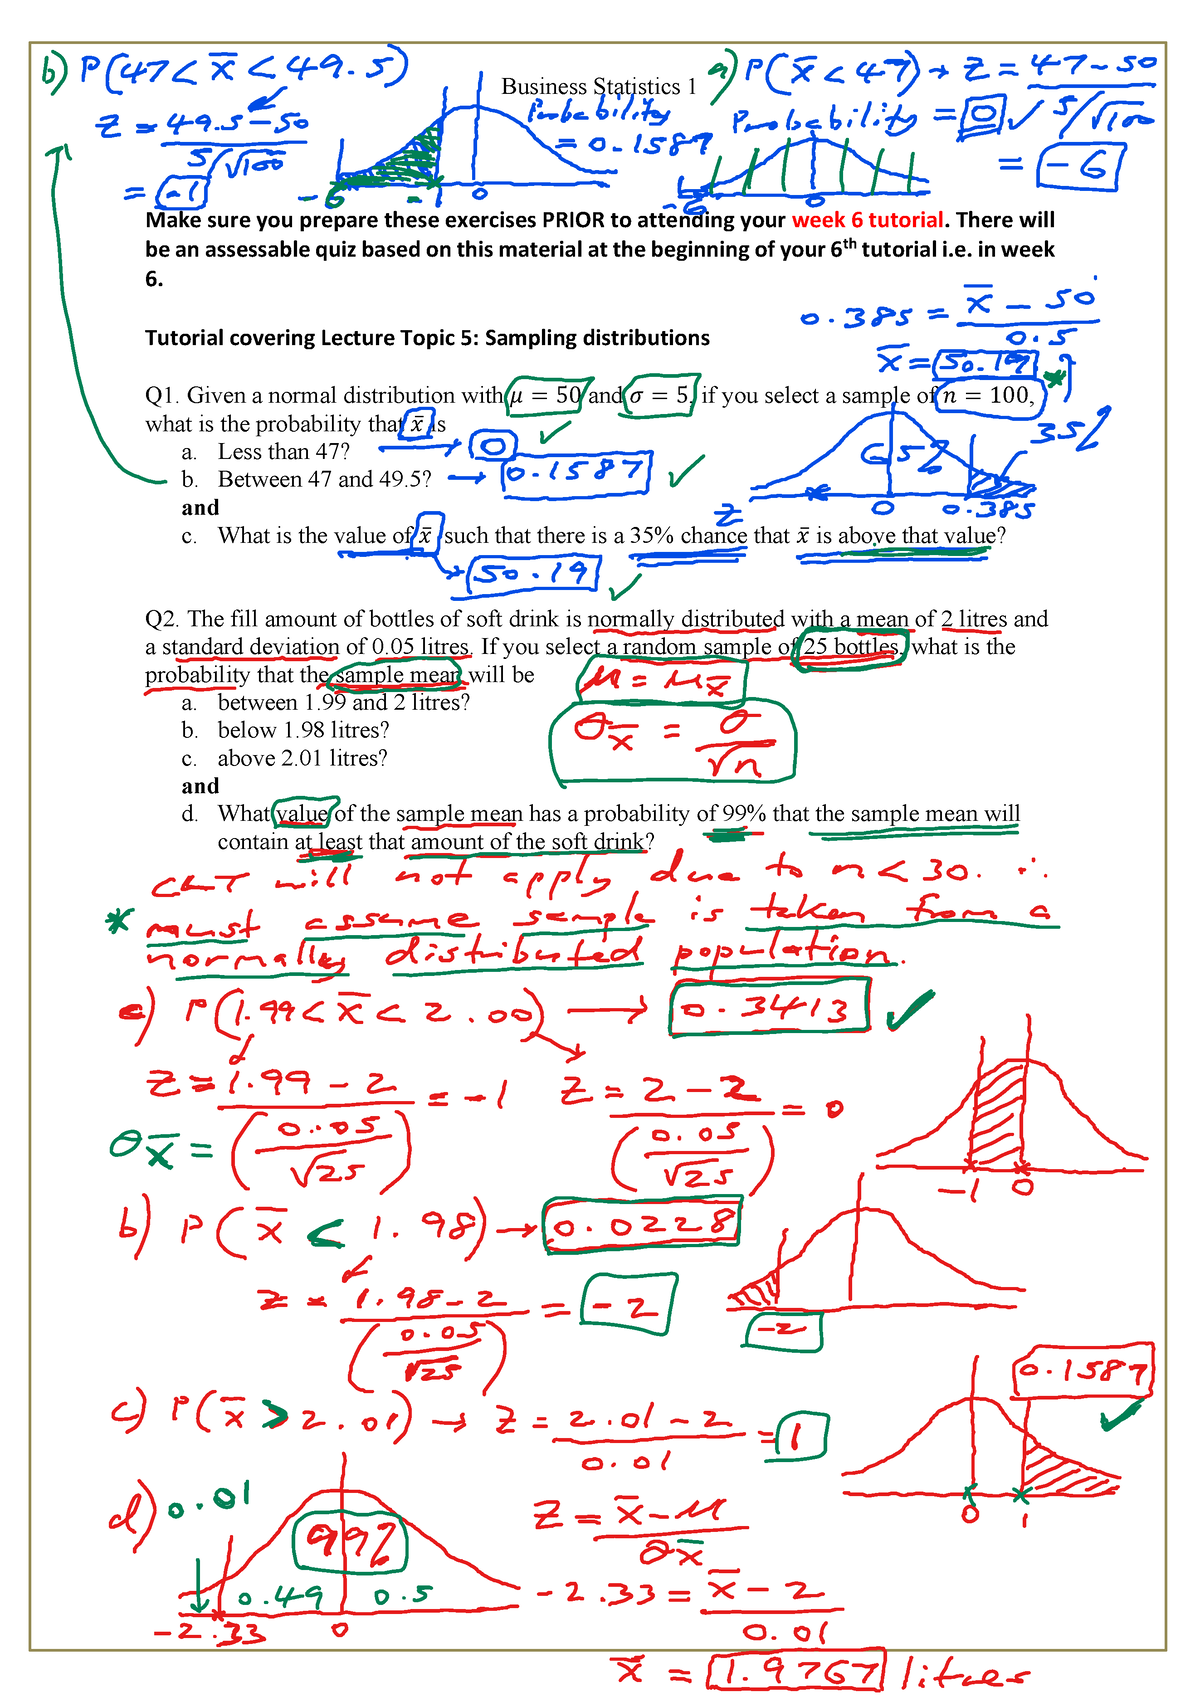 b) P(47 < x̄ < 49.5)
a) P(x̄ < 47) → z = 47 - 50
5/√100
Business Statistics 1
z = 49.5 - 50
5/√100
Probability = 0.1587
Probability = 0 ✓
= -1
= -6
-6 -1 0
-6 0
Make sure you prepare these exercises PRIOR to attending your week 6 tutorial. There will
be an assessable quiz based on this material at the beginning of your 6th tutorial i.e. in week
6.
0.385 = x̄ - 50
0.5
Tutorial covering Lecture Topic 5: Sampling distributions
x̄ = 50.19 *
Q1. Given a normal distribution with μ = 50 and σ = 5, if you select a sample of n = 100,
what is the probability that x̄ is
a. Less than 47? → 0 ✓
b. Between 47 and 49.5? → 0.1587 ✓
65% 35%
z 0 0.385
and
c. What is the value of x̄ such that there is a 35% chance that x̄ is above that value?
→ 50.19 ✓
Q2. The fill amount of bottles of soft drink is normally distributed with a mean of 2 litres and
a standard deviation of 0.05 litres. If you select a random sample of 25 bottles, what is the
probability that the sample mean will be
a. between 1.99 and 2 litres?
b. below 1.98 litres?
c. above 2.01 litres?
μ = μx̄
σx̄ = σ
√n
and
d. What value of the sample mean has a probability of 99% that the sample mean will
contain at least that amount of the soft drink?
CLT will not apply due to n < 30. ∴
* must assume sample is taken from a
normally distributed population.
a) P(1.99 < x̄ < 2.00) → 0.3413 ✓
z = 1.99 - 2 = -1 z = 2 - 2 = 0
σx̄ = (0.05/√25) (0.05/√25)
-1 0
b) P(x̄ < 1.98) → 0.0228
z = 1.98 - 2 = -2
(0.05/√25)
-2
0.1587 ✓
c) P(x̄ > 2.01) → z = 2.01 - 2 = 1
0.01
0 1
d) 0.01
99%
0.49 0.5
-2.33 0
z = x̄ - μ
σx̄
-2.33 = x̄ - 2
0.01
x̄ = 1.9767 litres